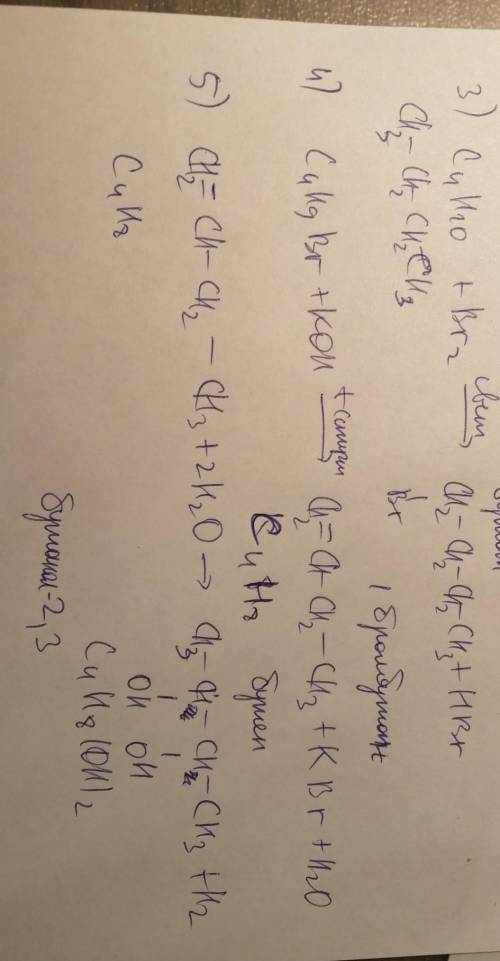 3) C4H10 + Br2 свет → CH2 – CH2 – CH2 – CH3 + HBr
CH3 – CH2 – CH2 – CH3
Br
1 бромбутан
4) C4H9Br + KOH + спирт → CH2 = CH – CH2 – CH3 + KBr + H2O
C4H8 бутен
5) CH2 = CH – CH2 – CH3 + 2H2O → CH3 – CH – CH – CH3 + H2
OH OH
C4H8
C4H8(OH)2
-2,3